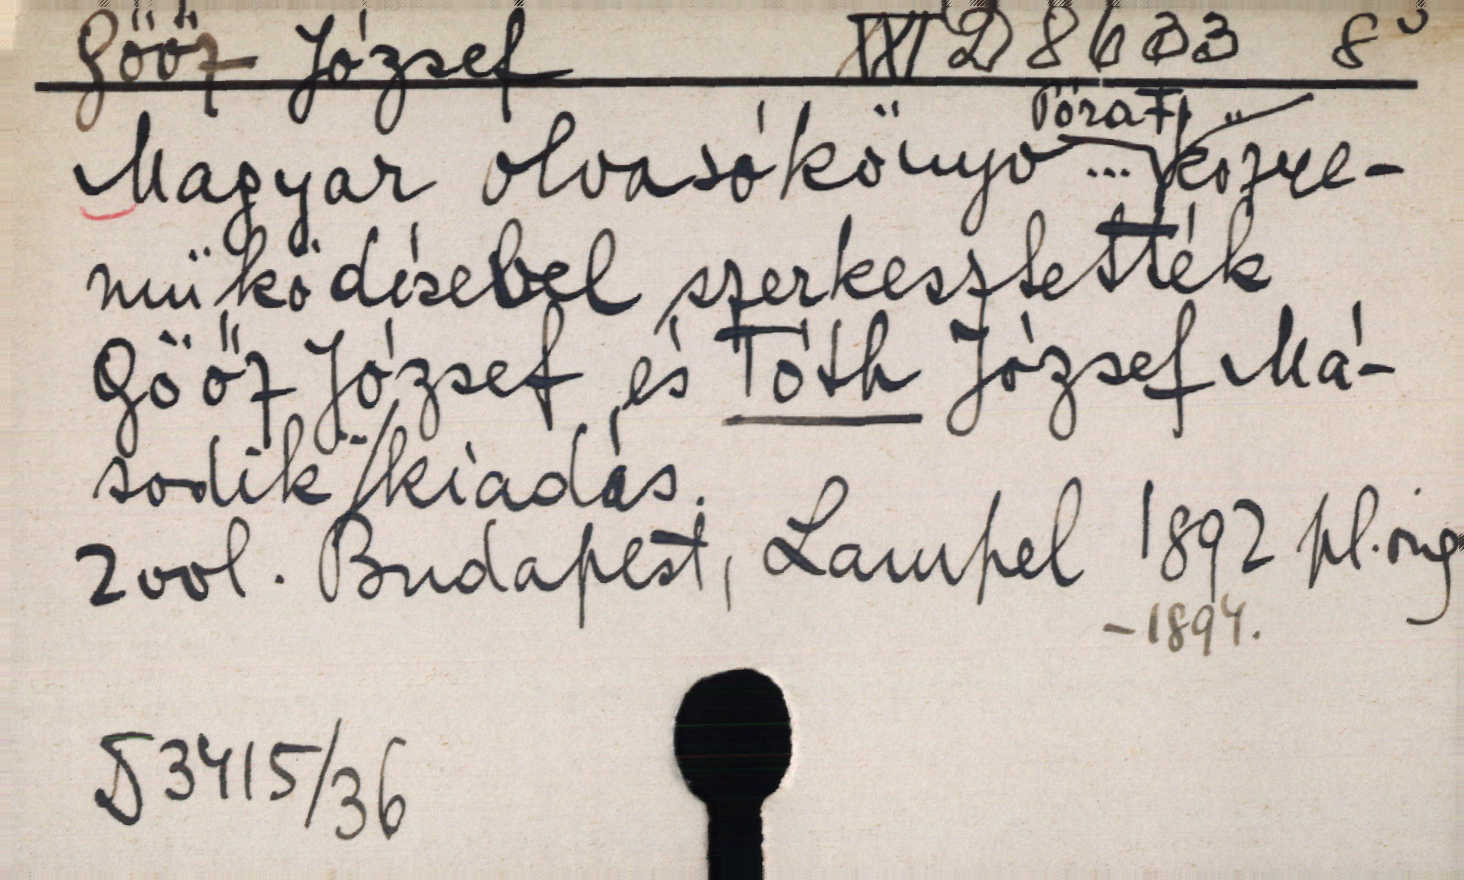 Göőz József XXI D 8633 8°
Póra F.
Magyar olvasókönyv ... közre-
müködésével szerkesztették
Göőz József és Tóth József Má-
sodik kiadás.
2 vol. Budapest, Lampel 1892
-1894.
3415/36